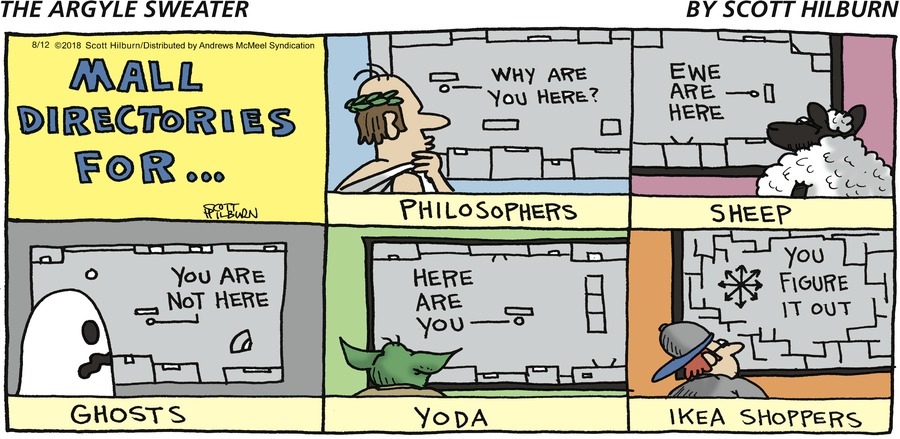 THE ARGYLE SWEATER
BY SCOTT HILBURN
8/12 ©2018 Scott Hilburn/Distributed by Andrews McMeel Syndication
MALL
DIRECTORIES
FOR...
SCOTT
HILBURN
WHY ARE
YOU HERE?
PHILOSOPHERS
EWE
ARE
HERE
SHEEP
YOU ARE
NOT HERE
GHOSTS
HERE
ARE
YOU
YODA
YOU
FIGURE
IT OUT
IKEA SHOPPERS